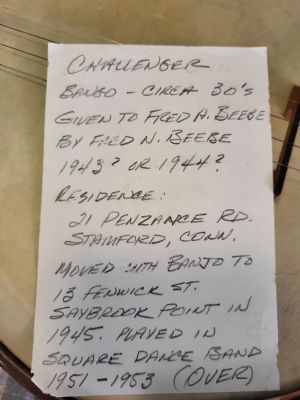 CHALLENGER
BANJO - CIRCA 30's
GIVEN TO FRED A. BEEBE
BY FRED N. BEEBE
1943? OR 1944?
RESIDENCE:
21 PENZANCE RD.
STAMFORD, CONN.
MOVED WITH BANJO TO
13 FENWICK ST.
SAYBROOK POINT IN
1945. PLAYED IN
SQUARE DANCE BAND
1951-1953 (OVER)